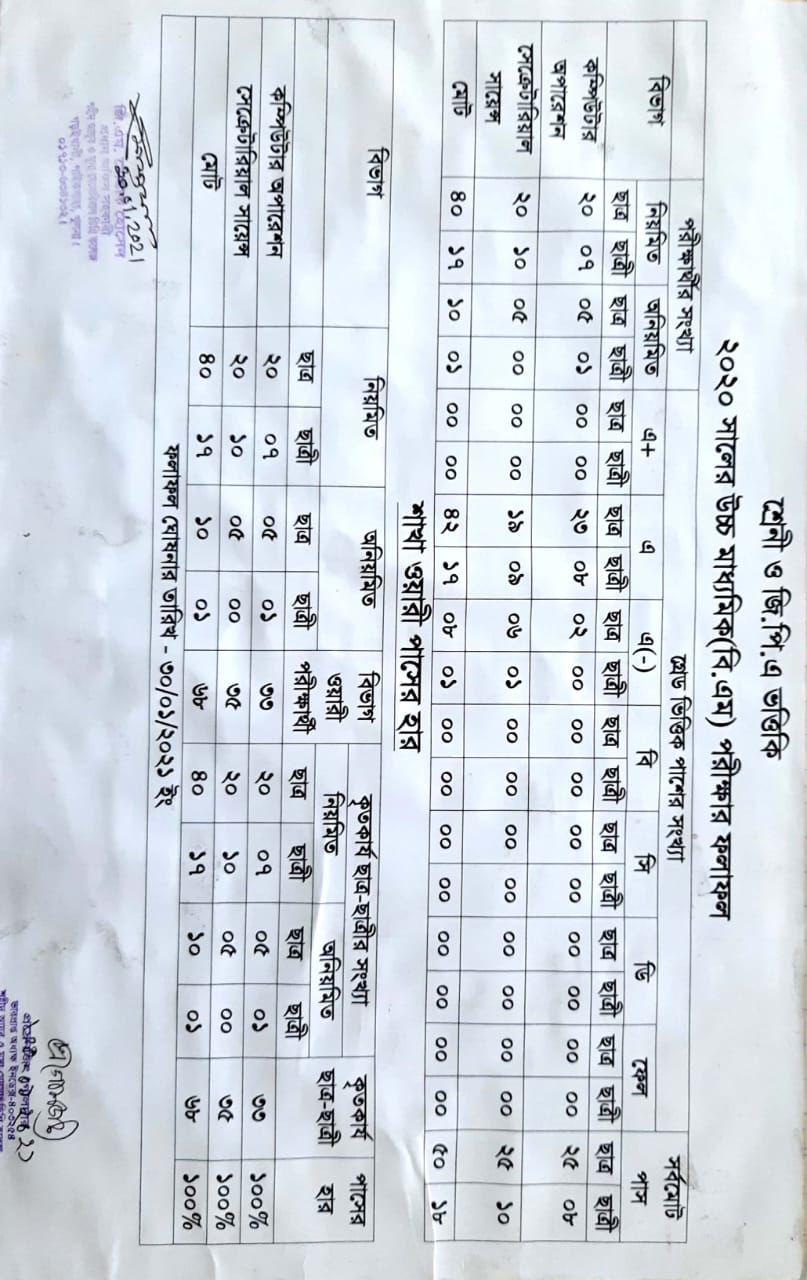 শ্রেনী ও জি.পি.এ ভত্তিকি
২০২০ সালের উচ্চ মাধ্যমিক(বি.এম) পরীক্ষার ফলাফল
বিভাগ পরীক্ষার্থীর সংখ্যা গ্রেড ভিত্তিক পাশের সংখ্যা সর্বমোট পাশ
নিয়মিত অনিয়মিত এ+ এ এ(-) বি সি ডি ফেল
ছাত্র ছাত্রী ছাত্র ছাত্রী ছাত্র ছাত্রী ছাত্র ছাত্রী ছাত্র ছাত্রী ছাত্র ছাত্রী ছাত্র ছাত্রী ছাত্র ছাত্রী ছাত্র ছাত্রী ছাত্র ছাত্রী
কম্পিউটার অপারেশন ২০ ০৭ ০৫ ০১ ০০ ০০ ২৩ ০৮ ০২ ০০ ০০ ০০ ০০ ০০ ০০ ০০ ০০ ০০ ২৫ ০৮
সেক্রেটারিয়াল সায়েন্স ২০ ১০ ০৫ ০০ ০০ ০০ ১৯ ০৯ ০৬ ০১ ০০ ০০ ০০ ০০ ০০ ০০ ০০ ০০ ২৫ ১০
মোট ৪০ ১৭ ১০ ০১ ০০ ০০ ৪২ ১৭ ০৮ ০১ ০০ ০০ ০০ ০০ ০০ ০০ ০০ ০০ ৫০ ১৮
শাখা ওয়ারী পাসের হার
বিভাগ নিয়মিত অনিয়মিত বিভাগ ওয়ারী পরীক্ষার্থী কৃতকার্য ছাত্র-ছাত্রীর সংখ্যা কৃতকার্য ছাত্র-ছাত্রী পাসের হার
নিয়মিত অনিয়মিত
ছাত্র ছাত্রী ছাত্র ছাত্রী ছাত্র ছাত্রী ছাত্র ছাত্রী
কম্পিউটার অপারেশন ২০ ০৭ ০৫ ০১ ৩৩ ২০ ০৭ ০৫ ০১ ৩৩ ১০০%
সেক্রেটারিয়াল সায়েন্স ২০ ১০ ০৫ ০০ ৩৫ ২০ ১০ ০৫ ০০ ৩৫ ১০০%
মোট ৪০ ১৭ ১০ ০১ ৬৮ ৪০ ১৭ ১০ ০১ ৬৮ ১০০%
ফলাফল ঘোষনার তারিখ - ৩০/০১/২০২১ ইং